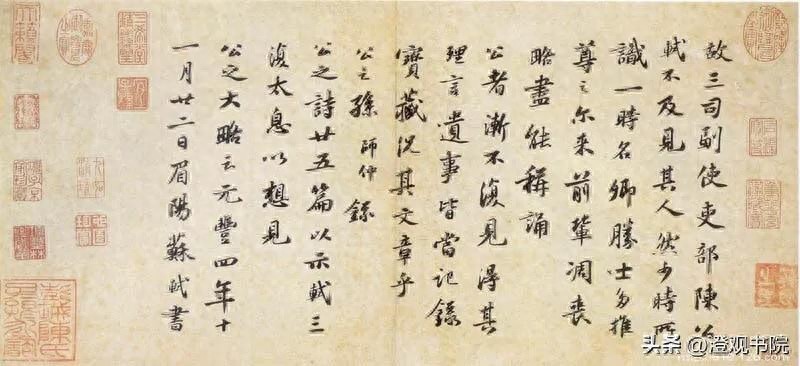 故三司副使吏部陳公
軾不及見其人然少時所
識一時名卿勝士多推
尊之尔来前輩凋喪
略盡能稱誦
公者漸不復見得其
理言遺事皆當記錄
寶藏況其文章乎
公之孫師仲錄
公之詩廿五篇以示軾三
復太息以想見
公之大略云元豐四年十
一月廿二日眉陽蘇軾書
头条 @澄观书院